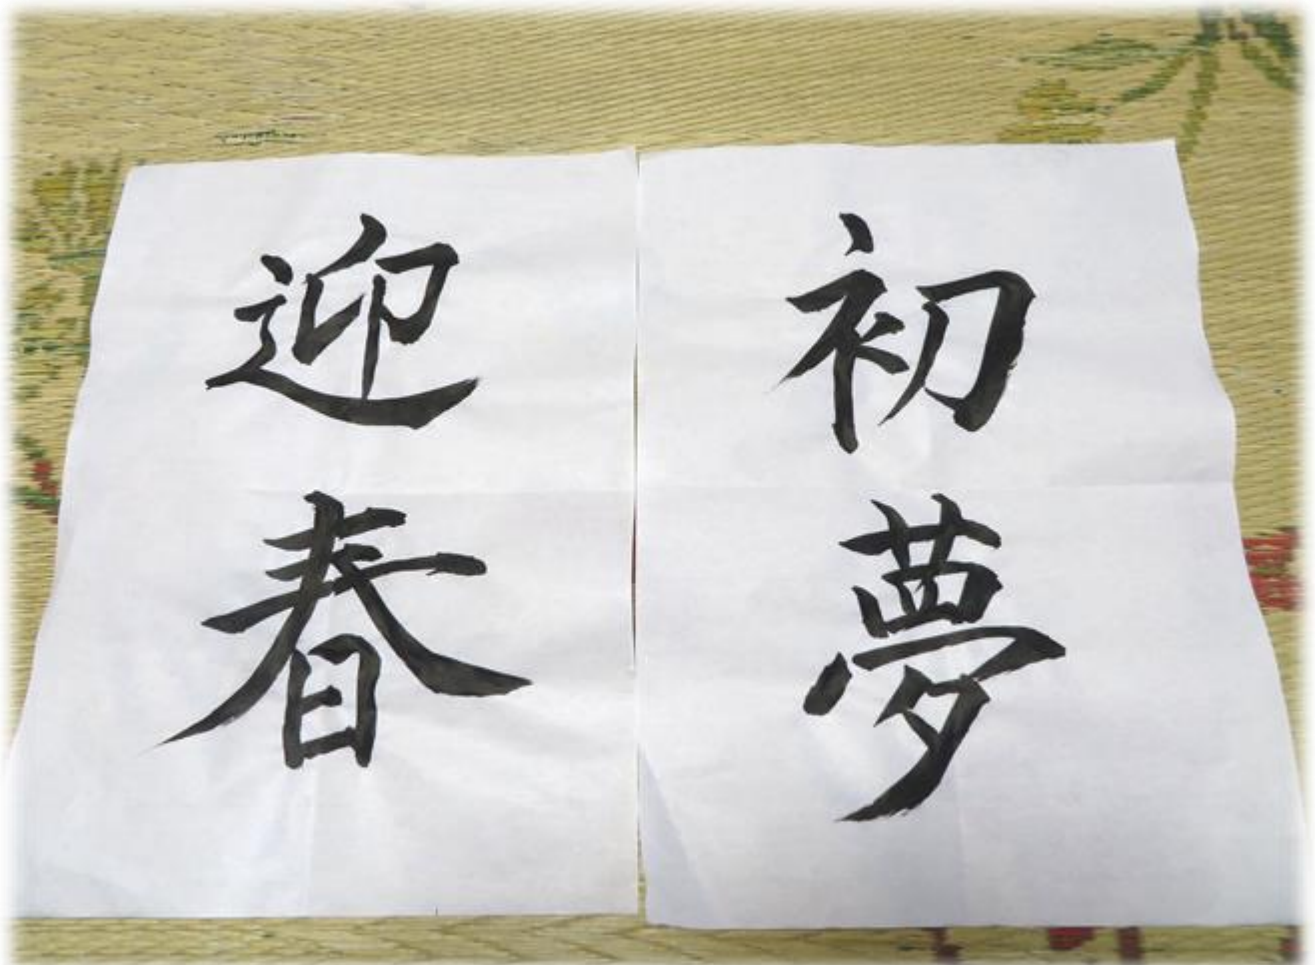 初夢
迎春